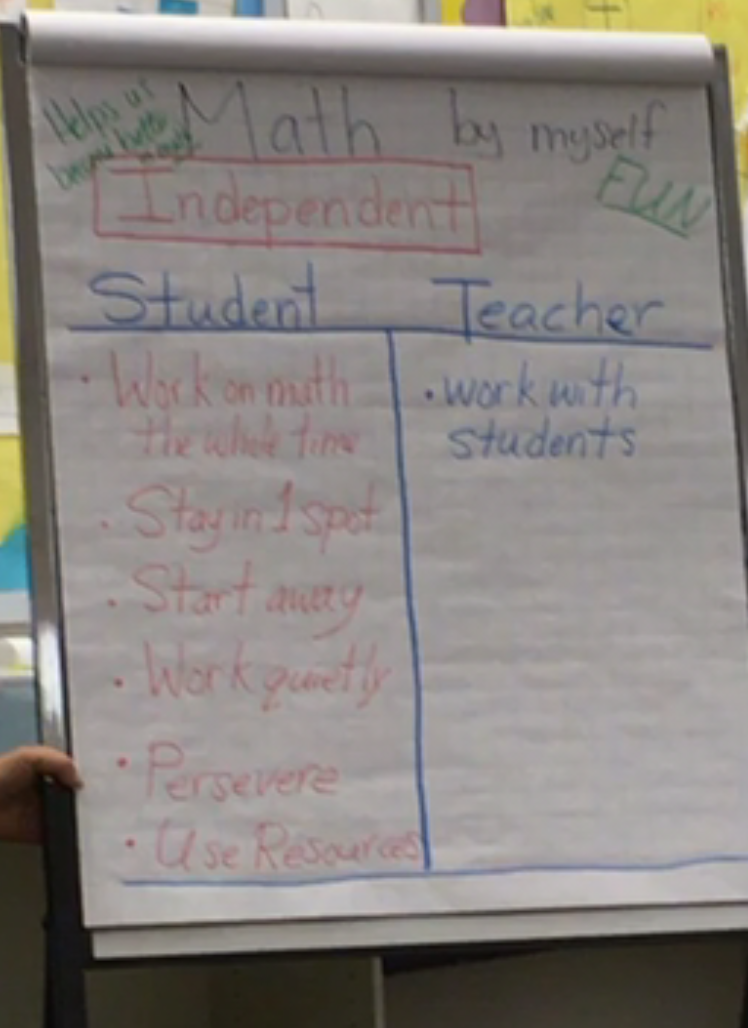 Helps us
become better
Math by myself
Independent
FUN
Student Teacher
· Work on math
the whole time
· Stay in 1 spot
· Start away
· Work quietly
· Persevere
· Use Resources
· work with
students